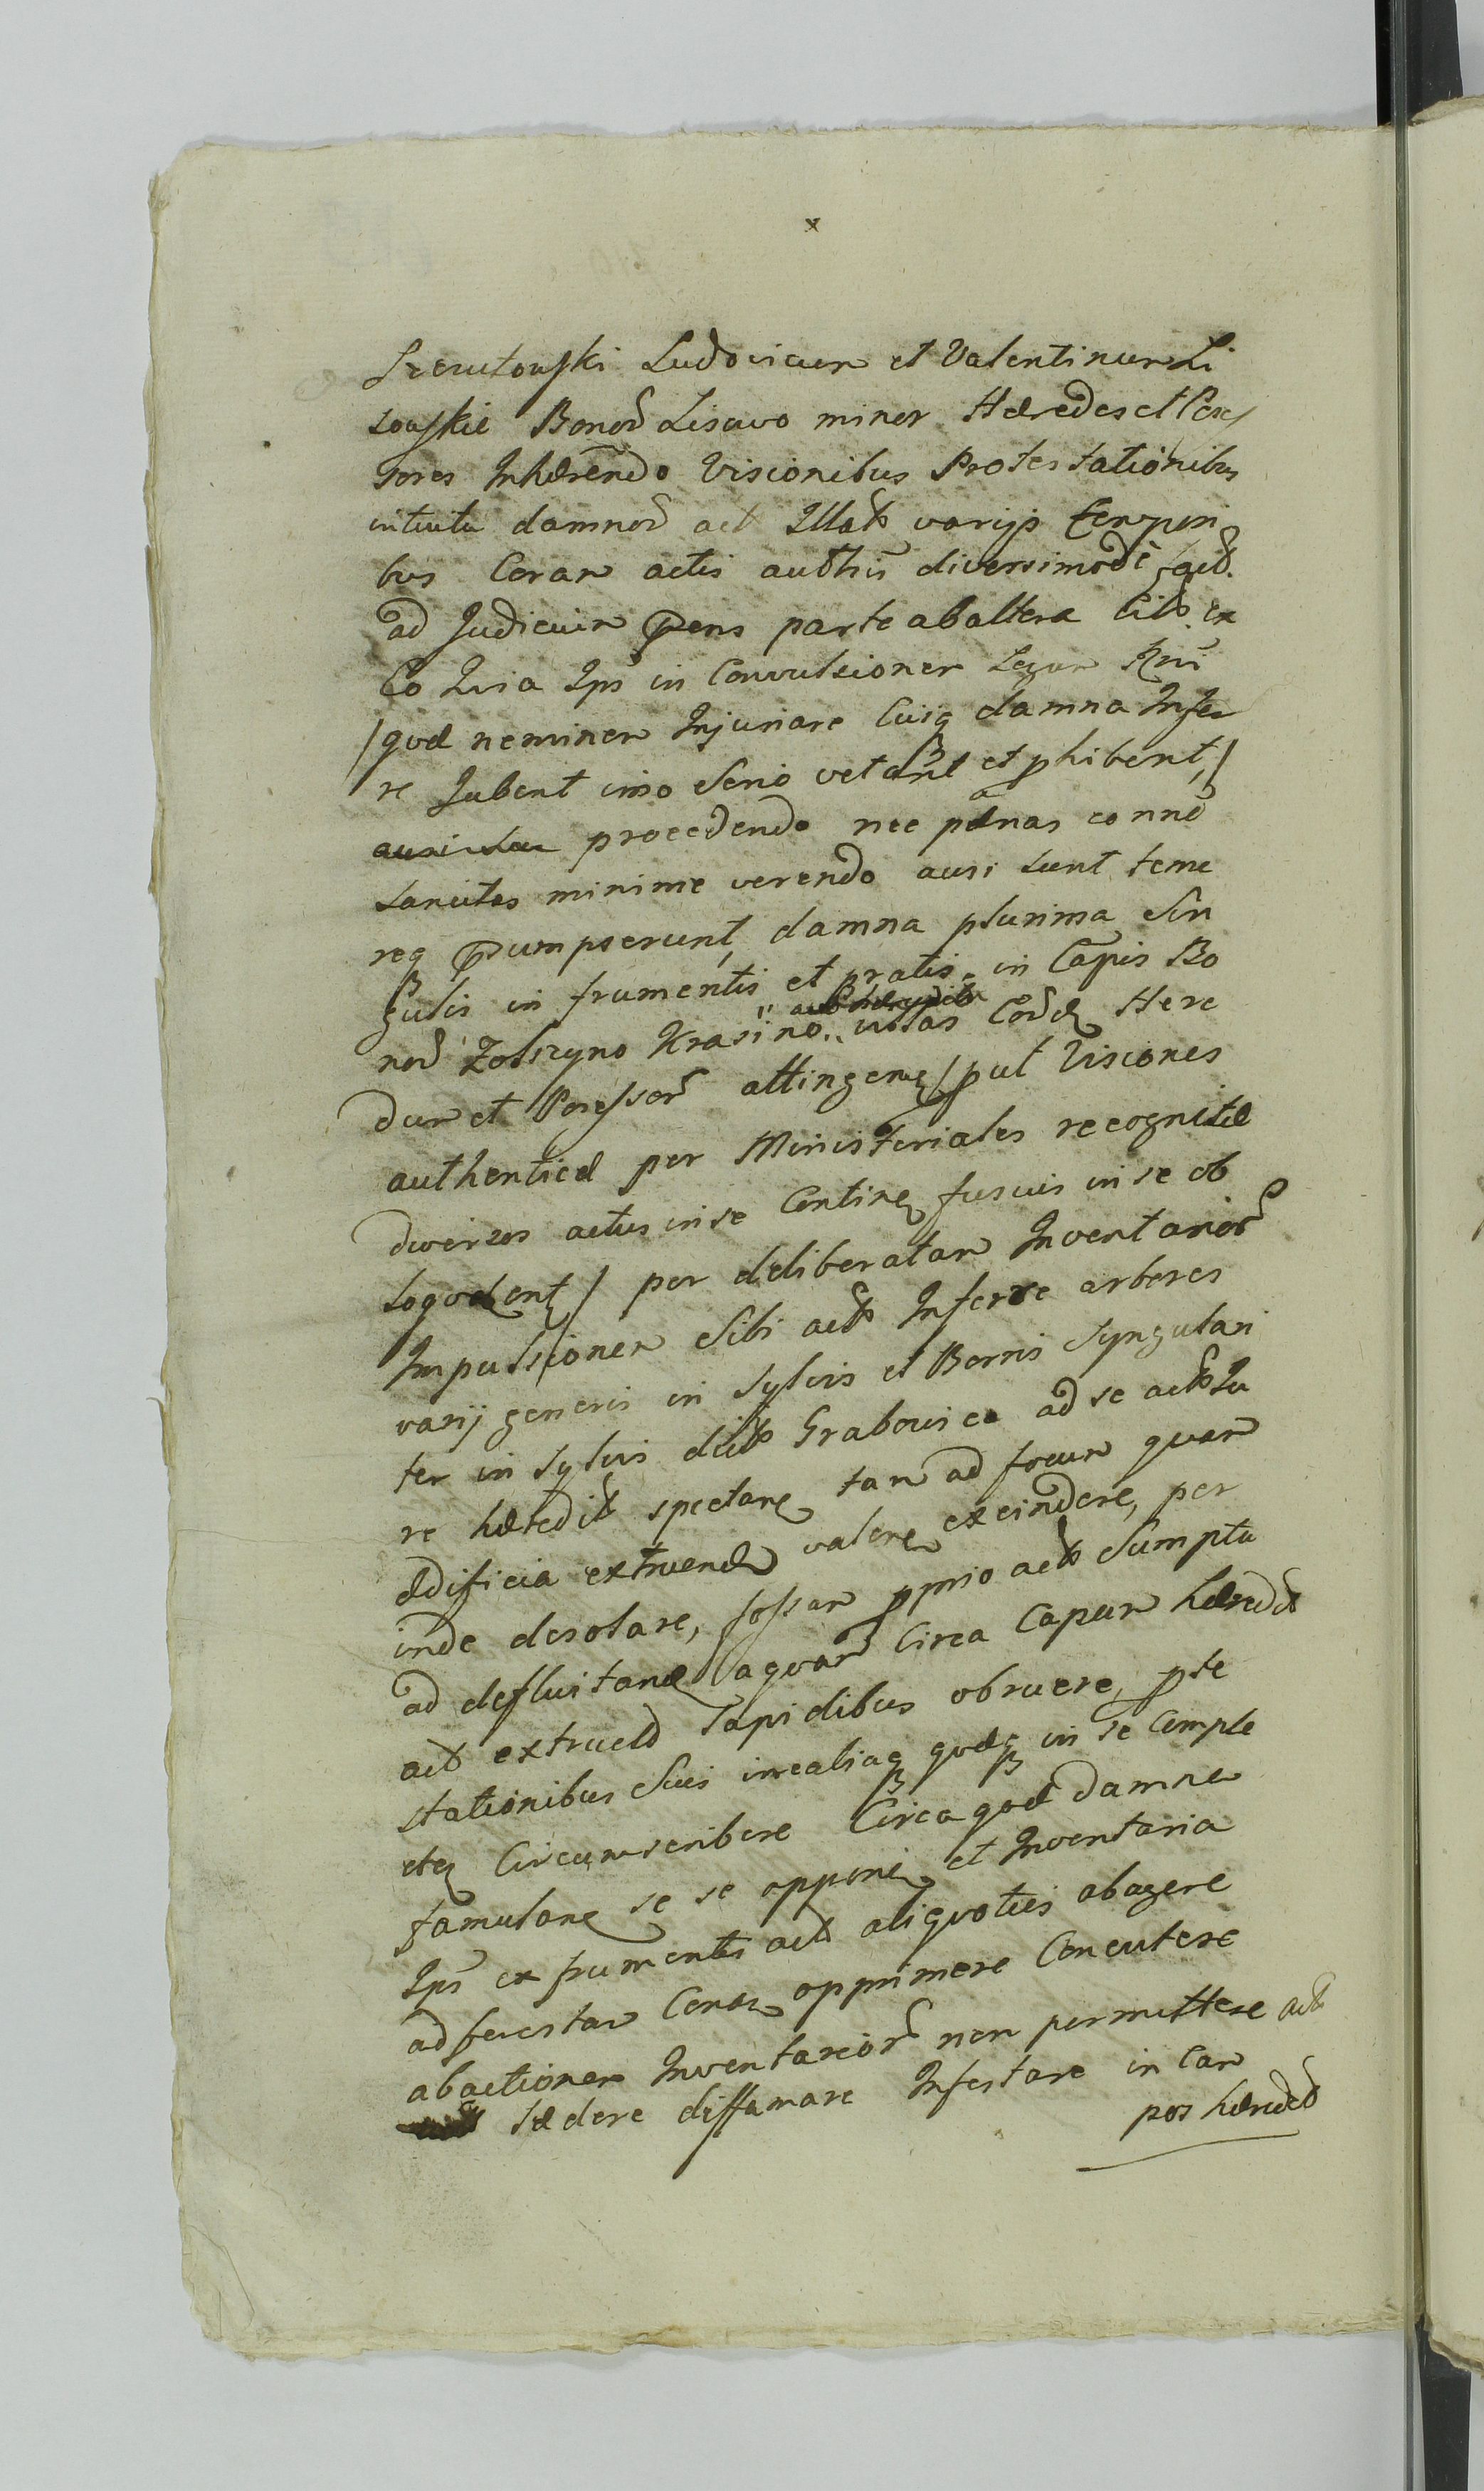 x
Szczutowski Ludovicum et Valentinum Li
sowskie Bonor Lisowo minor Hæredes et Posses
sores Inhærendo Visionibus Protestationibus
intuitu damnor act Illat varijs tempori
bus Coram actis authis diversimode fact.
ad Judicium pens parte ab altera Cit ex
Eo Quia Ips in Convulsionem Legum Rni
/quæ neminem Injuriare Cuiq damna Infer
re Jubent imo Serio vetant et phibent,/
procedendo nec pænas eonne
sancitas minime verendo ausi sunt teme
req Psumpserunt, damna plurima Sin
gulis in frumentis et pratis in Capis Bo
nor Zolszyno Krasino.. ultas Cord Here
dum et Possessor attingen / put Visiones
authenticæ per Ministeriales recognitæ
diversos actus in se Contine fusius in se ob
loquent / per deliberatam Inventarior
Impulsionem Sibi act Inferre arbores
varij generis in Sylvis et Borris Syngulari
ter in sylvis dict Grabowiec ad se act Ju
re hæredit spectan tam ad focum quam
ædificia extruend valen excindere, per
inde desolare, fossam pprio act Sumptu
ad defluitand aquar Circa Capum hæredit
act extruct Lapidibus obruere, pte
stationibus Suis irrealiaq quæq in se Comple
cten Circumscribere Circa quæ damna
famulan se se opponen et Inventaria
Ips ex frumentis act aliquoties abagere
ad Conan opprimere Concutere
abactionem Inventarior non permittere act
lædere diffamare Infestare in Cam
pos hæredit